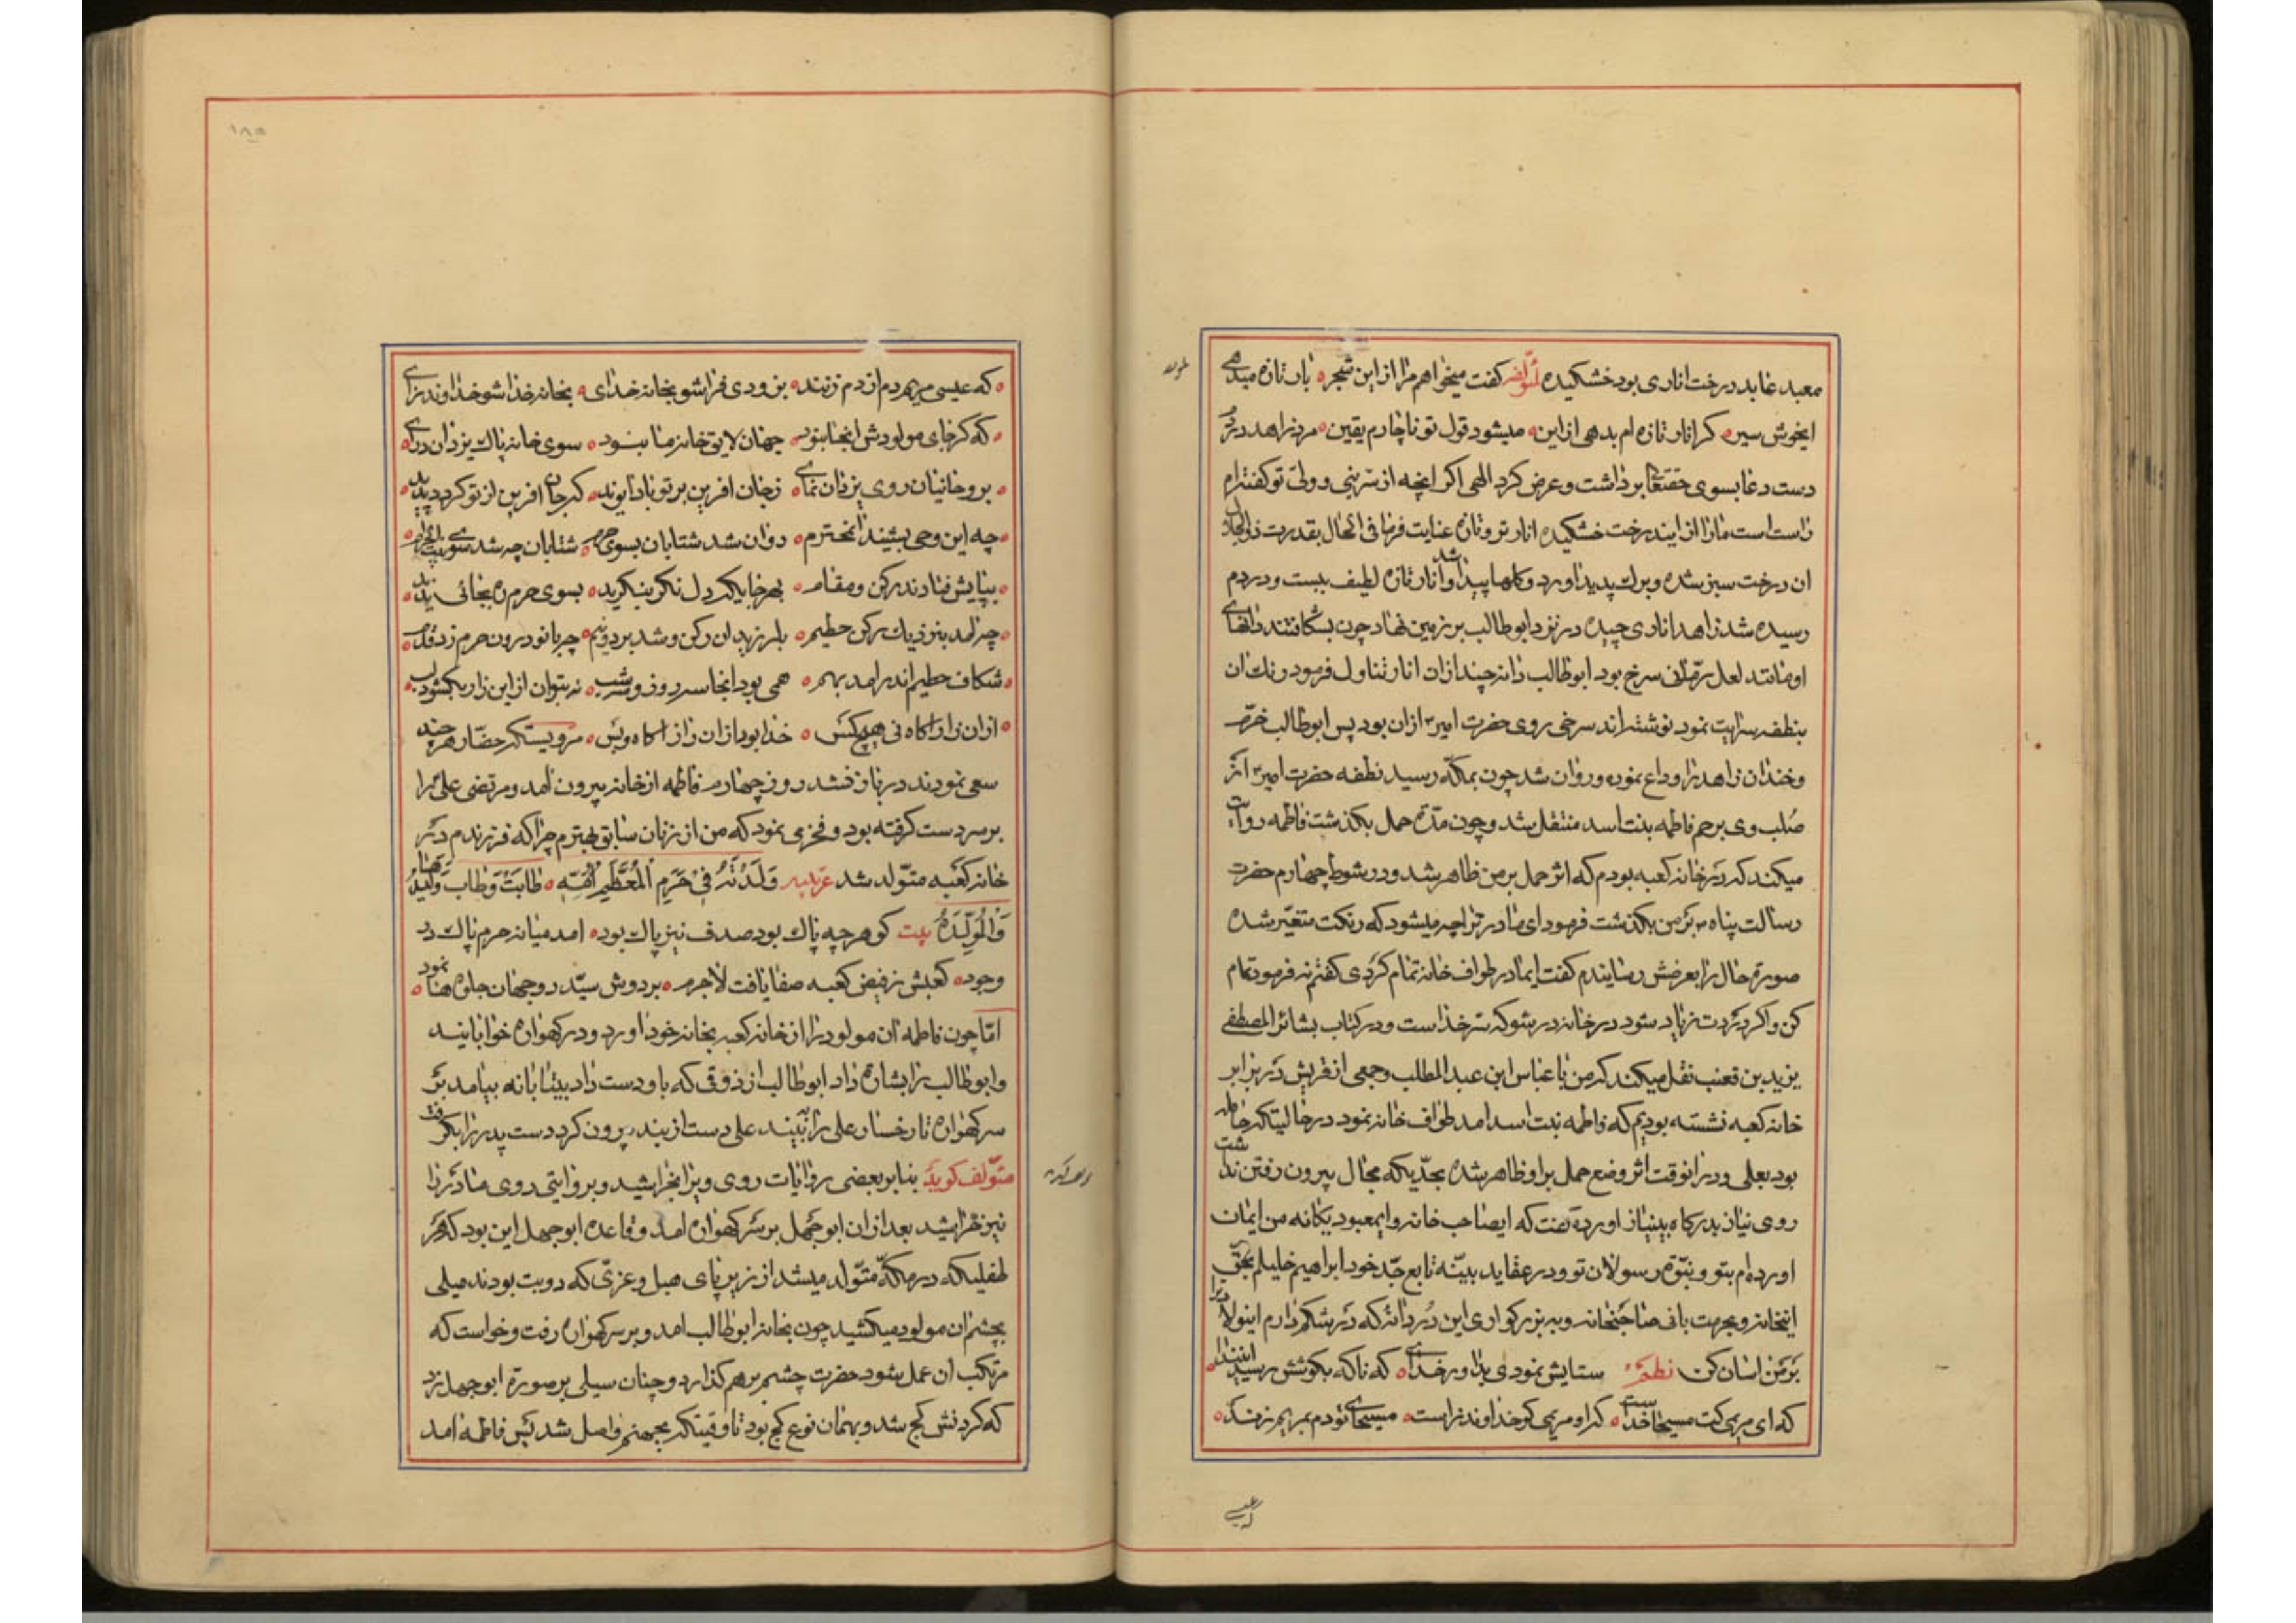 معبد عابد درخت اناری بود خشکیده لمؤلفه گفت میخواهم مرا از این شجره بار تازه میدهی
ایخوش سیره گر انار تازه ام بدهی از این میشود قول تو ناچارم یقین مرد زاهد در
دست دعا بسوی حقتعالی برداشت و عرض کرد الهی اگر انچه از سر نبی و ولی تو گفته‌ام
راست است ما را از ایندرخت خشکیده انار تر و تازه عنایت فرما فی الحال بقدرت ذو الجلال
ان درخت سبز شده و برك پدید اورد و کلها پیدا شد و انار تازه لطیف ببست و در دم
رسیده شد زاهد اناری چیده در نزد ابوطالب بر زمین نهاد چون بشکافتند دانهای
او مانند لعل رمانی سرخ بود ابوطالب دانه چند از ان انار تناول فرمود رنك ان
بنطفه سرایت نمود نوشته‌اند سرخی روی حضرت امیر از ان بود پس ابوطالب خرم
و خندان زاهد را وداع نموده و روان شد چون بمکه رسید نطفه حضرت امیر از
صلب وی برحم فاطمه بنت اسد منتقل شد و چون مدة حمل بگذشت فاطمه روایت
میکند که در خانه کعبه بودم که اثر حمل بر من ظاهر شد و در شوط چهارم حضرت
رسالت پناه بر من بگذشت فرمود ای مادر ترا چه میشود که رنکت متغیر شده
صورة حال را بعرضش رسانیدم گفت ایمادر طواف خانه تمام کردی گفتم نه فرمود تمام
کن و اگر دردت زیاد شود در خانه در شو که سر خداست و در کتاب بشائر المصطفی
یزید بن قعنب نقل میکند که من با عباس ابن عبد المطلب و جمعی از قریش در برابر
خانه کعبه نشسته بودیم که فاطمه بنت اسد امد طواف خانه نمود در حالیتکه حامله
بود بعلی و در انوقت اثر وضع حمل بر او ظاهر شده بحدیکه مجال بیرون رفتن نداشت
روی نیاز بدرگاه بینیاز اورده گفت که ایصاحب خانه و ایمعبود یگانه من ایمان
اورده‌ام بتو و بنبوة رسولان تو و در عقاید بدینه تابع جد خود ابراهیم خلیلم بحق
اینخانه و بحرمت بانی صاحبخانه و به بزرکواری این دردانه که در شکم دارم اینولاد را
بر من اسان کن نظم ستایش نمودی بداور خدای که ناگه بگوشش رسید این ندا
که ای مریمی کت مسیحا خداست که او مریمی کو خداوند راست مسیحای تو دم بمریم زند
که عیسی مریم دم از دم زند بزودی فراشو بخانه خدای بخانه خدا شو خداوند رای
که گر جای مولودش اینجا بنود جهان لایق خانه ما نبود سوی خانه پاك یزدان درای
بروحانیان روی یزدان نمای ز جان افرین بر تو بادا نوید که جان افرین از تو گردد پدید
چه این وحی بشنید ان محترم دوان شد شتابان بسوی حرم شتابان چه شد سوی بیت الحرام
بپایش فتادند رکن و مقام بهر جا یکی دل نکو بنگرید بسوی حرم ره بجائی ندید
چه امد بنزدیك رکن حطیم بلرزید ان رکن و شد بر دو نیم چه بانو درون حرم زد قدم
شکاف حطیم اندر امد بهم همی بود انجا سه روز و سه شب نه بتوان از این راز بگشود لب
از ان راز اگاه نی هیچ کس خدا بود از ان راز اگاه و بس مرویستکه حضار هر چند
سعی نمودند در باز نشد روز چهارم فاطمه از خانه بیرون امد و مرتضی علی را
بر سر دست گرفته بود و فخر می نمود که من از زنان سابق بهترم چرا که فرزندم در
خانه کعبه متولد شد عربیه وَلَدَتْهُ فِی حَرَمِ الْمُعَظَّمِ اُمُّهُ طَابَتْ وَطَابَ وَلِیدُهَا
وَالْمُوَلِّدَهُ بیت گوهر چه پاك بود صدف نیز پاك بود امد میانه حرم پاك در
وجود کعبش ز فیض کعبه صفا یافت لاجرم بر دوش سید دو جهان جلوه‌ها نمود
امّا چون فاطمه ان مولود را از خانه کعبه بخانه خود اورد و در کهواره خوابانید
و ابوطالب را بشارة داد ابوطالب از ذوقی که باو دست داد بیتابانه بیامد بر
سر کهواره تا رخسار علی را ببیند علی دست از بند بیرون کرد دست پدر را بگرفت
مؤلف گوید بنابر بعضی روایات روی ویرا بخراشید و بروایتی روی مادر را
نیز خراشید بعد از ان ابوجهل بر سر کهواره امد و قاعده ابوجهل این بود که هر
طفلیکه در مکه متولد میشد از زیر پای هبل و عزی که دو بت بودند میلی
بچشم ان مولود میکشید چون بخانه ابوطالب امد و بر سر کهواره رفت و خواست که
مرتکب ان عمل شود حضرت چشم بر هم گذارد و چنان سیلی بر صورة ابوجهل زد
که گردنش کج شد و بهمان نوع کج بود تا وقیتکه بجهنم واصل شد پس فاطمه امد